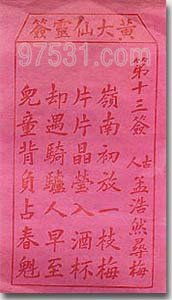 黃大仙靈簽
97531.com
第十三簽
古人 孟浩然尋梅
嶺南初放一枝梅
片片晶瑩入酒杯
却遇騎驢人早至
兒童背負占春魁